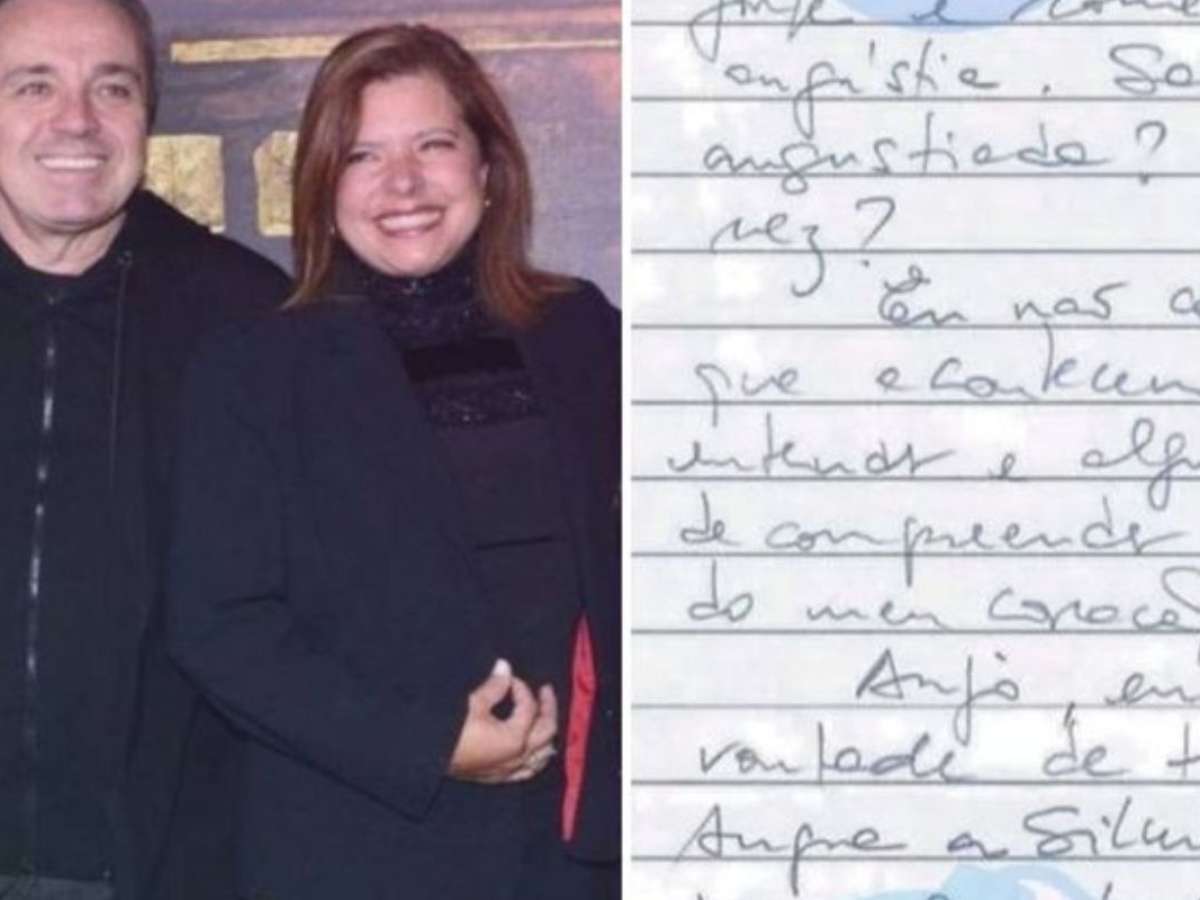 angústia. Se
angustiada?
vez?
Eu nas a
que acontecem
entender e alg
de compreender
do meu coração
Anjo, eu
vontade de t
Angra a